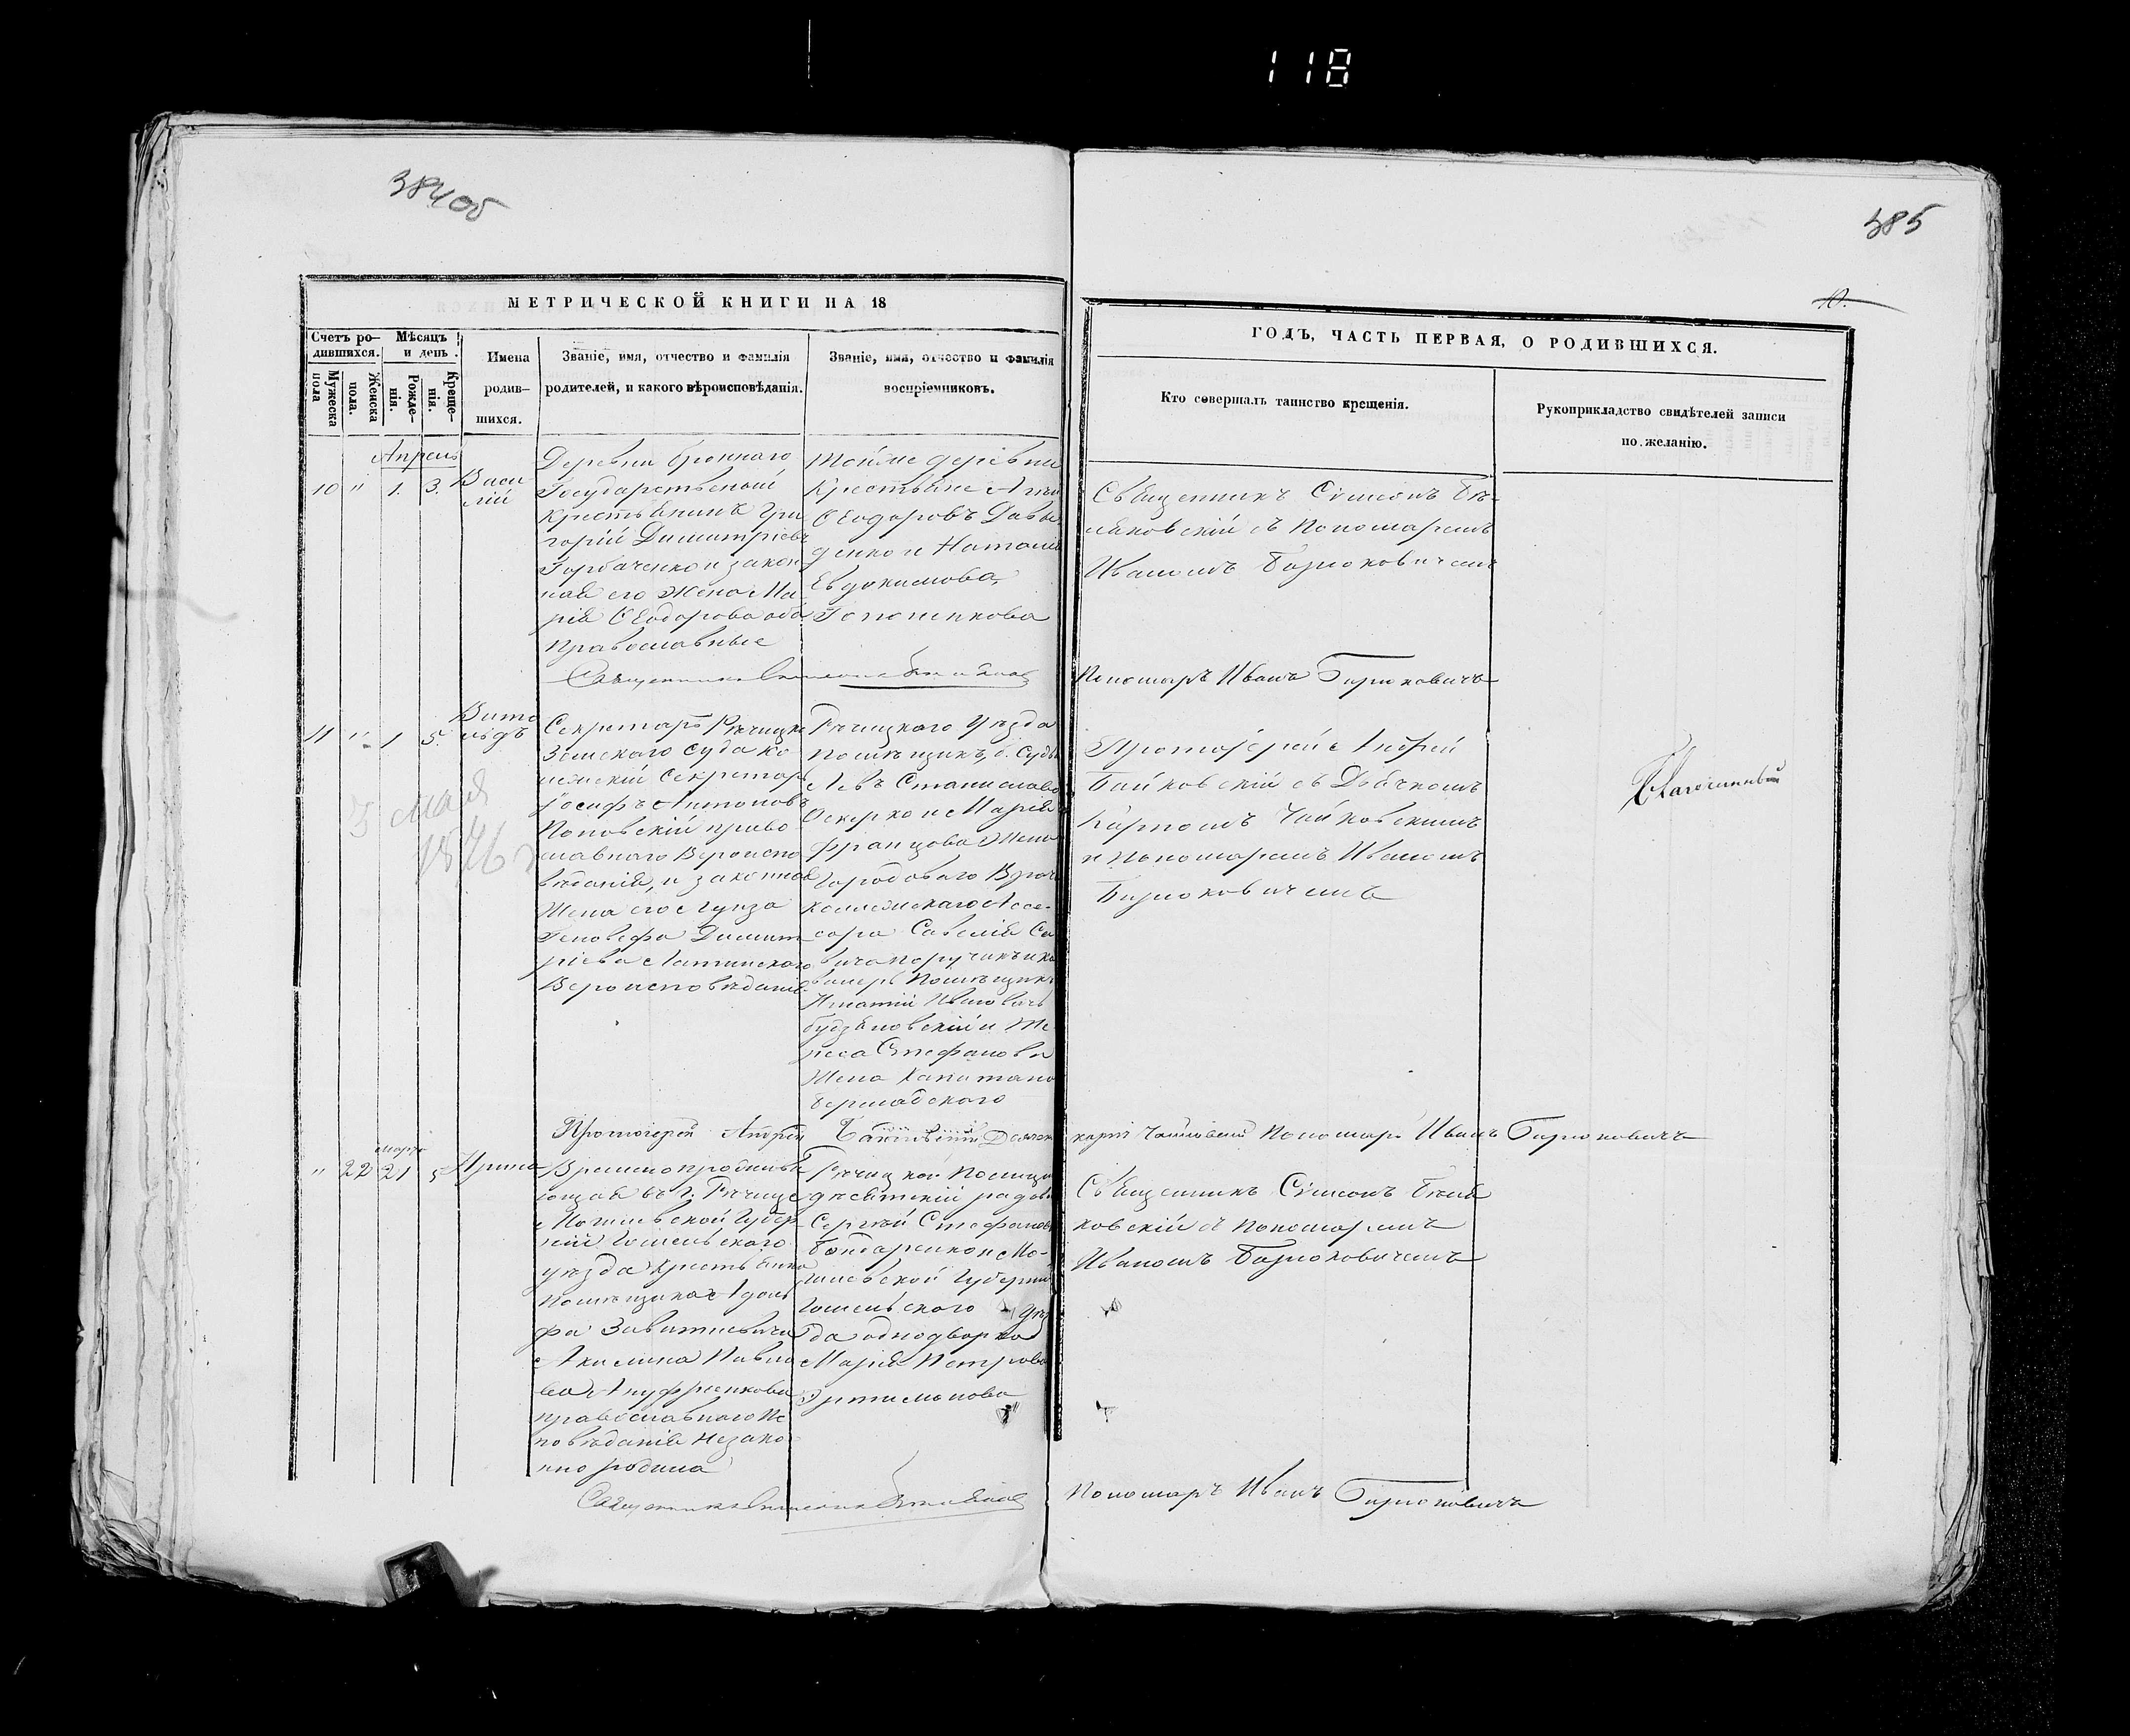 118
384 об
385
10.
МЕТРИЧЕСКОЙ КНИГИ НА 18
ГОДЪ, ЧАСТЬ ПЕРВАЯ, О РОДИВШИХСЯ.
Счетъ ро-
дившихся.
Мужеска
пола
Женска
пола.
Мѣсяцъ
и день.
Рожде-
нія.
Креще-
нія.
Имена
родив-
шихся.
Званіе, имя, отчество и фамилія
родителей, и какого вѣроисповѣданія.
Званіе, имя, отчество и фамилія
воспріемниковъ.
Кто совершалъ таинство крещенія.
Рукоприкладство свидѣтелей записи
по желанію.
Апрель
10 " 1. 3.
Васи
лій
Деревни Броннаго
Государственый
Крестьянинъ Гри
горій Димитріевъ
Горбаченко и закон
ная его Жена Ма
рія Ѳеодорова оба
Православные
Тойже деревни
Крестьяне
Ѳеодоровъ Давы
денко и Наталія
Евдокимова
Священникъ Сімеонъ Бѣ-
ляковскій съ Пономаремъ
Иваномъ Бирюковичемъ
Пономарь Иванъ Бирюковичъ
11 " 1 5.
Вито
льдъ
3 мая
Секретарь Рѣчицко
Земскаго Суда Ко
лежскій Секретарь
Іосифъ Антоновъ
Поповскій право
славнаго Вероиспо
веданія, и законная
Жена его Луиза
Геновефа Димит
ріева Латинскаго
Вероисповѣданія
Рѣчицкаго Уѣзда
Помѣщикъ, б. Судья
Левъ Станиславо
Оскерко и Марія
Францова Жена
Городоваго Врача
Коллежскаго Ассе-
сора Савелія Са
вича поручикъ и ка
валеръ Помѣщикъ
Игнатій Ивановичъ
Будзяновскій и Те
реса Стефанова
Жена Капитана
Протоіерей Андрей
Байковскій съ Дьячкомъ
Карпомъ Чайковскимъ
и Пономаремъ Иваномъ
Бирюковичемъ
Протоіерей Андрей Байковскій Дьячекъ
Карпъ Чайковскій Пономарь Иванъ Бирюковичъ
марта
" 22 21 5
Ирина
Временнопроживаю
ющая въ г. Рѣчице
Могилевской Губер
ніи Гомельскаго
уѣзда Крестьянка
Помѣщика Адоль
фа
Акилина Павло
ва Ануфріенкова
православнаго Ис
поведанія незако
нно родила
Рѣчицкой Полиціи
десятскій рядовой
Сергѣй Стефановъ
Бондаренко и Мо-
гилевской Губерніи
Гомельскаго Уѣз
да однодворка
Марія Петрова
Священникъ Сімеонъ Бѣля
ковскій съ Пономаремъ
Иваномъ Бирюковичемъ
Пономарь Иванъ Бирюковичъ